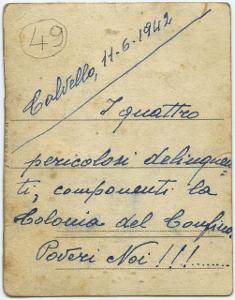 49
Calvello, 11-6-1942
I quattro
pericolosi delinquen
ti, componenti la
Colonia del Confino.
Poveri Noi!!!......